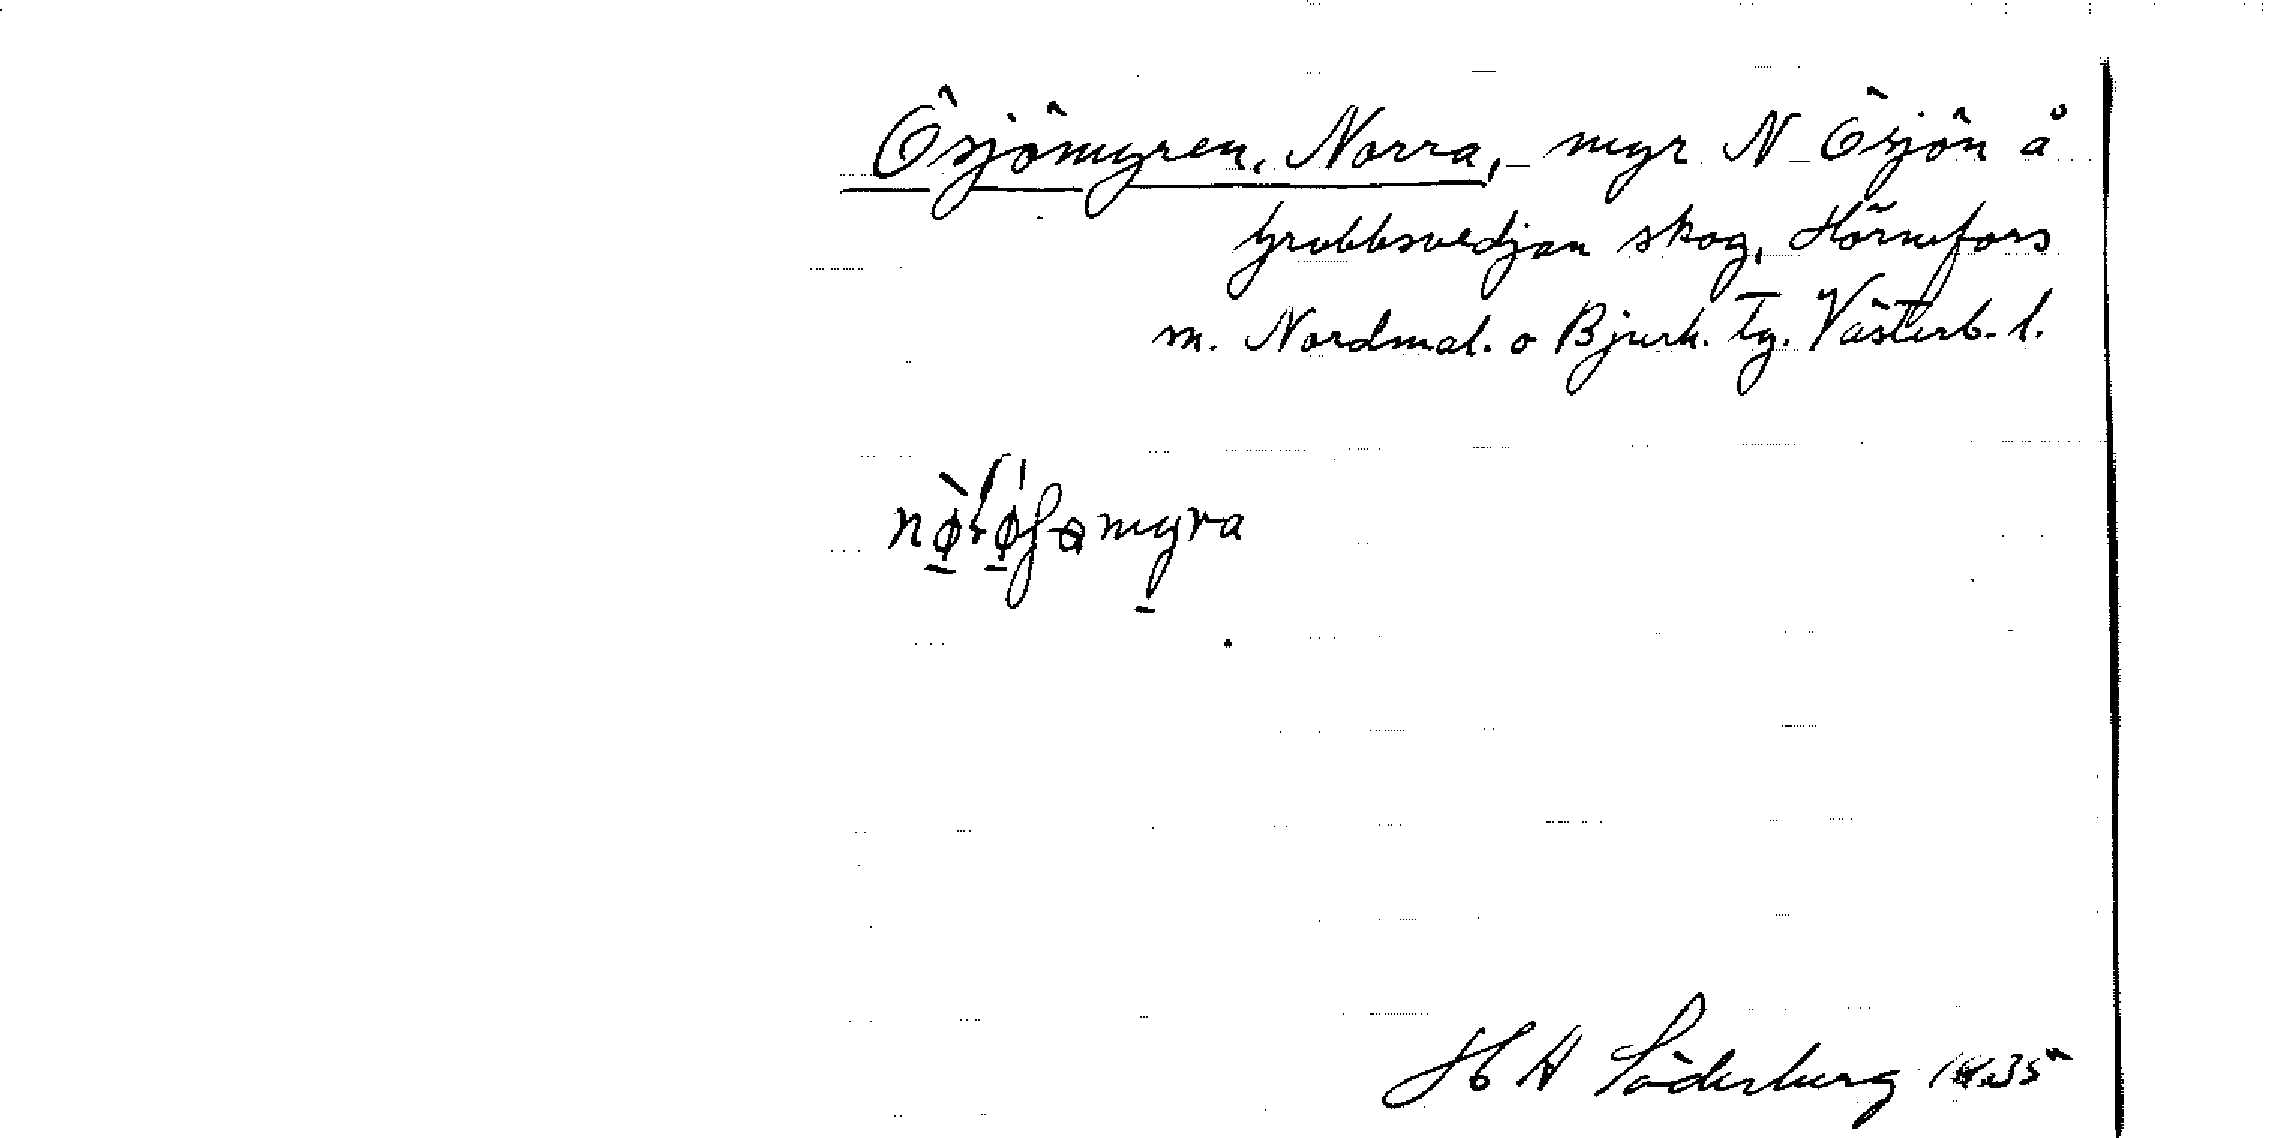 Ösjömyren, Norra, - myr N Ösjön å
Grubbsvedjan skog, Hörnefors
m. Nordmal. o Bjurh. Tg. Västerb. l.
H A Söderberg 1935